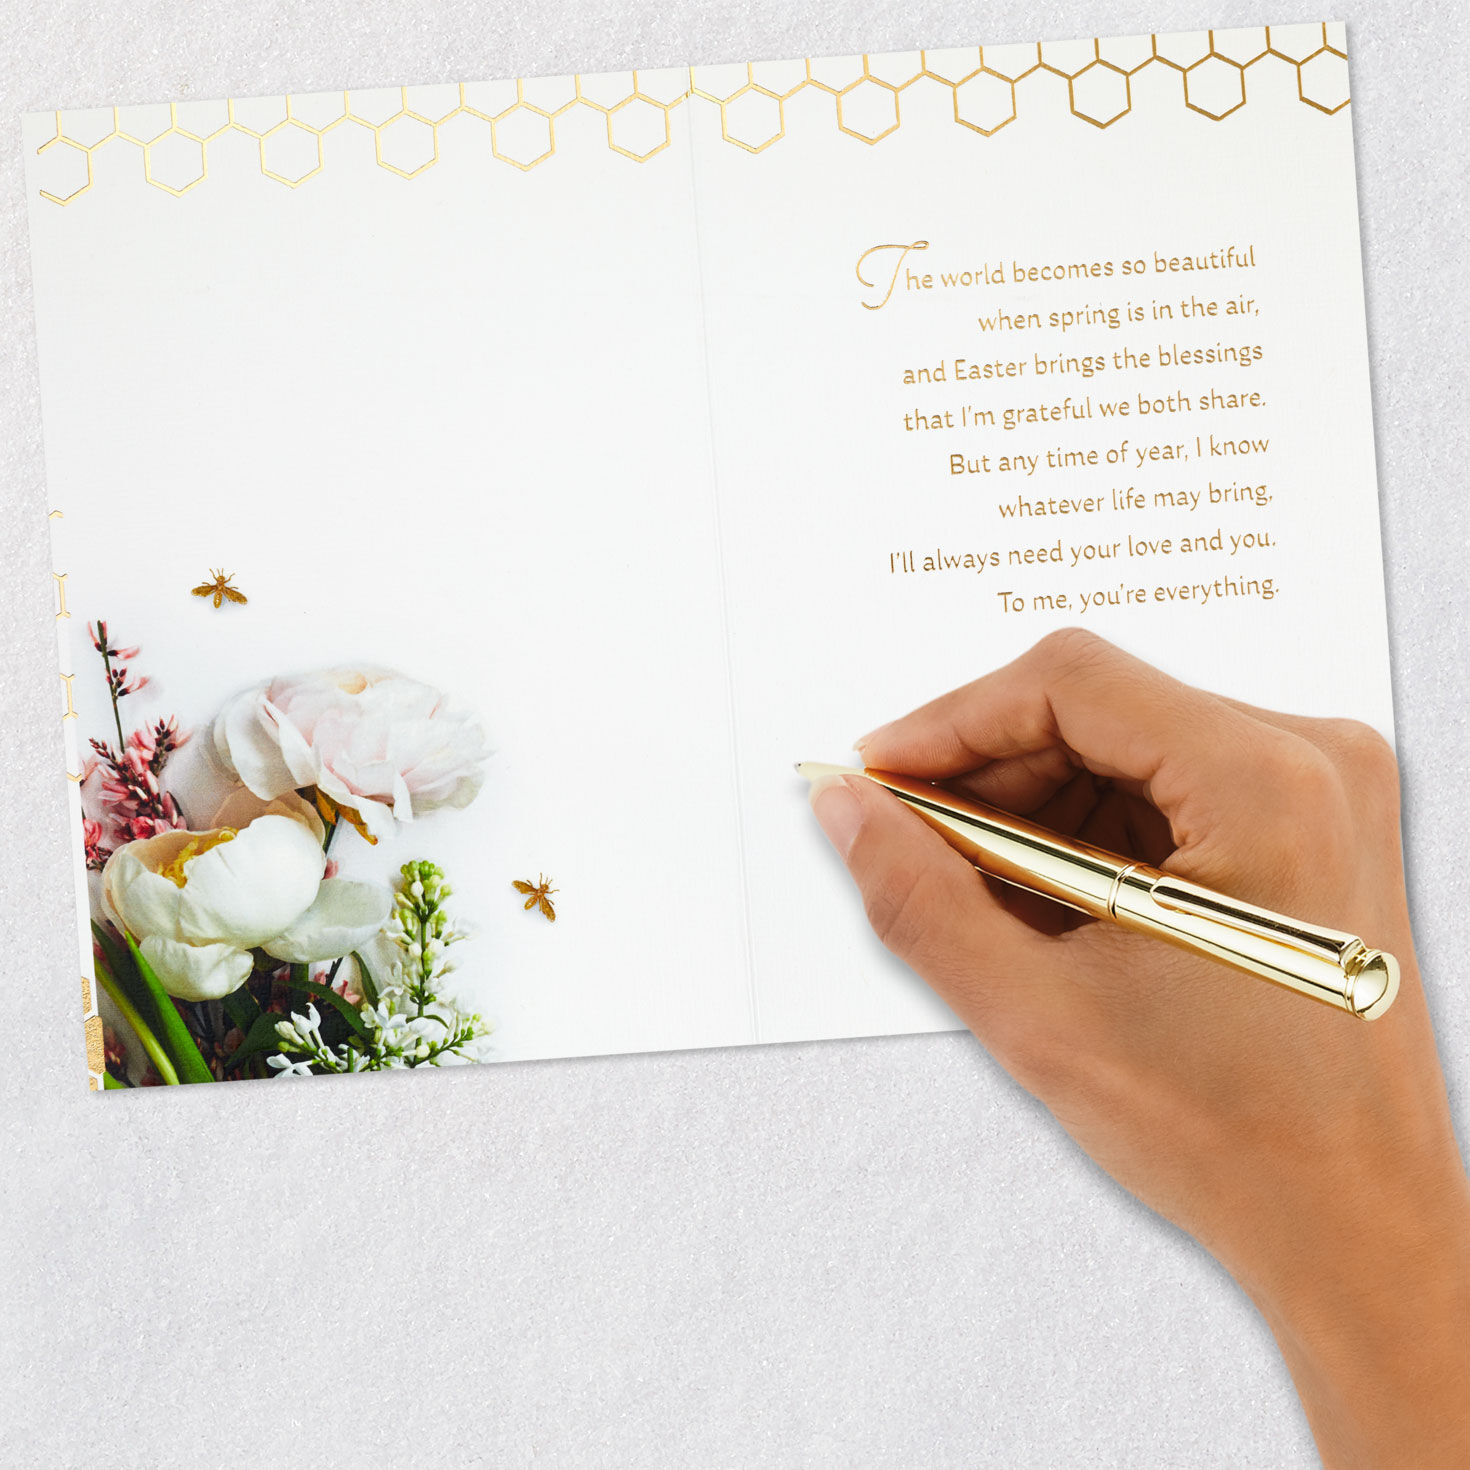 The world becomes so beautiful
when spring is in the air,
and Easter brings the blessings
that I'm grateful we both share.
But any time of year, I know
whatever life may bring,
I'll always need your love and you.
To me, you're everything.